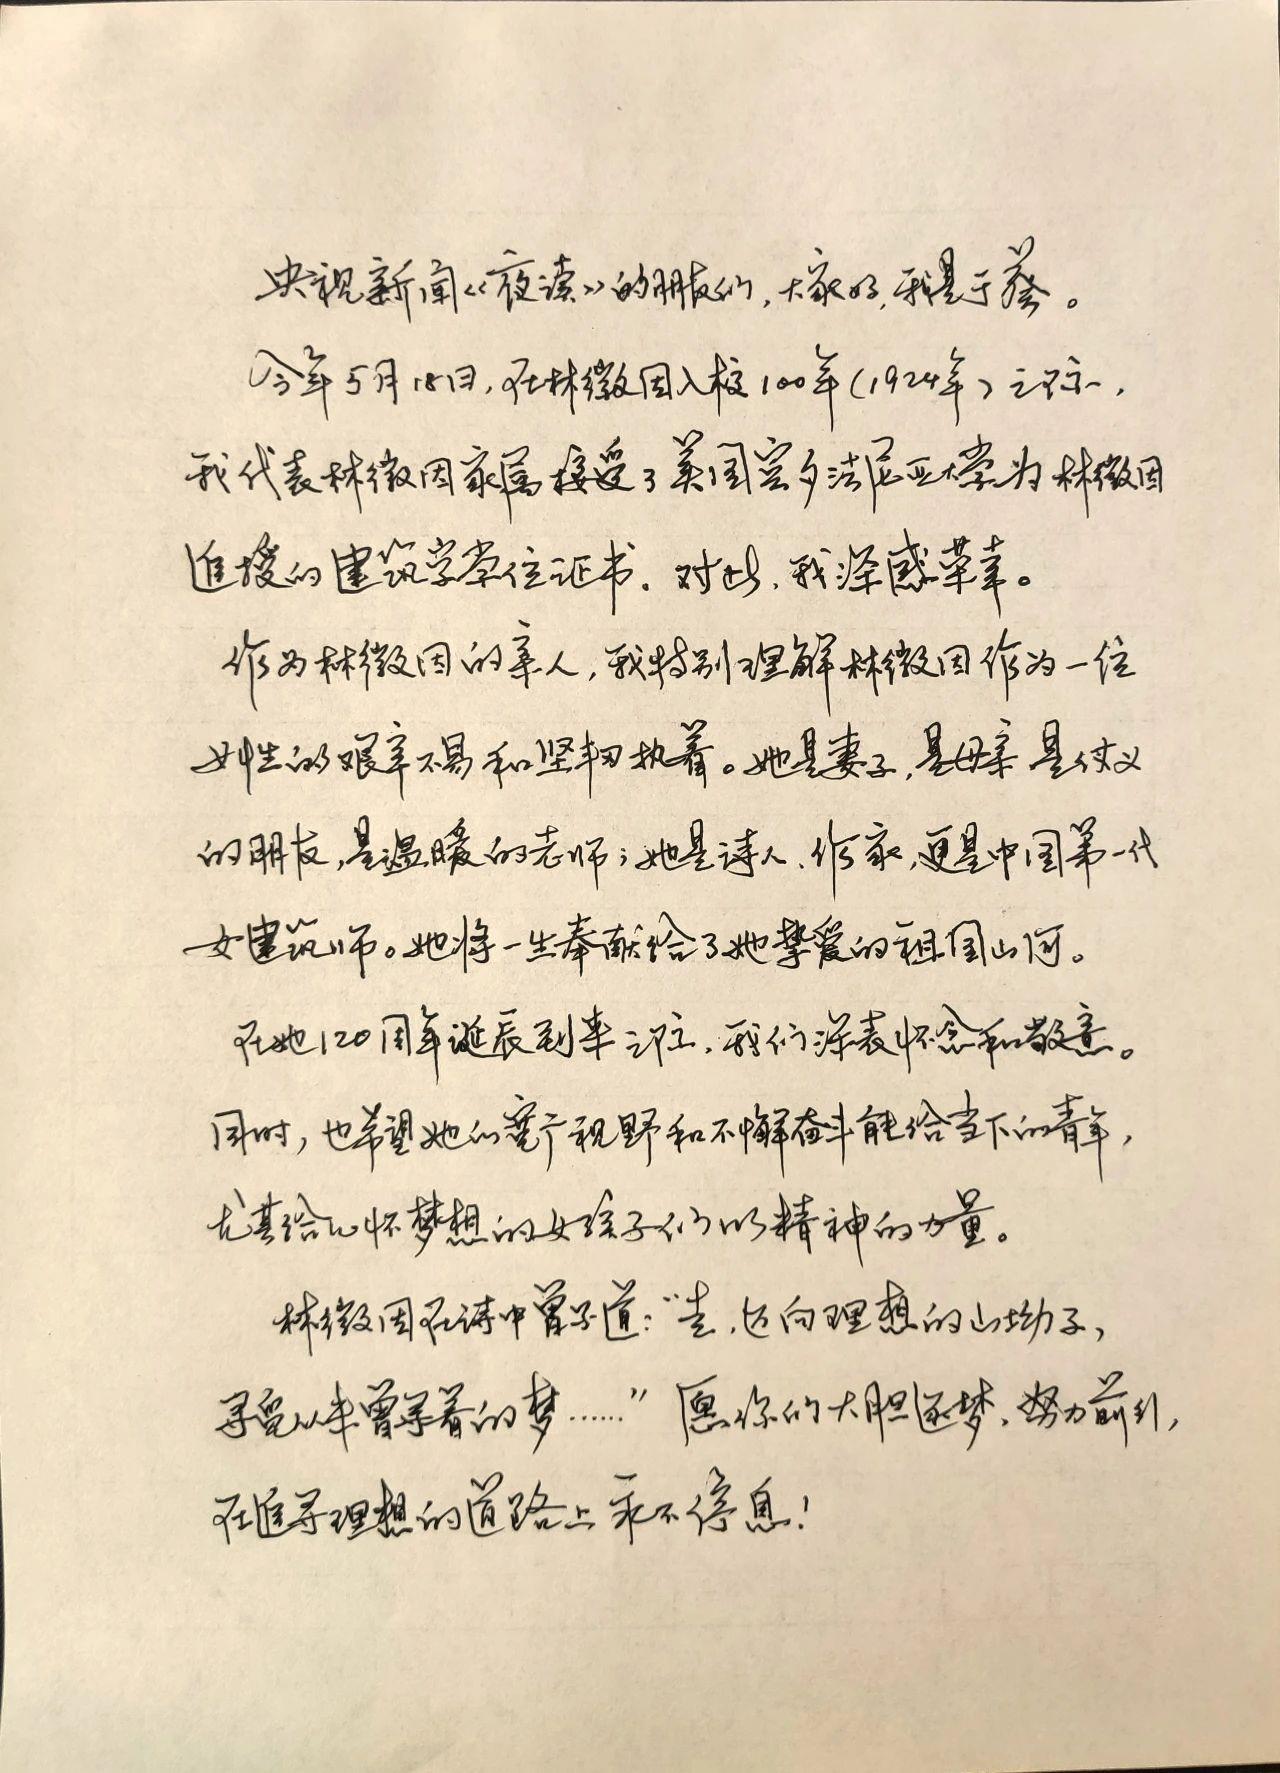 央视新闻《夜读》的朋友们，大家好，我是于葵。
今年5月18日，在林徽因入校100年（1924年）之际，
我代表林徽因家属接受了美国宾夕法尼亚大学为林徽因
追授的建筑学学位证书。对此，我深感荣幸。
作为林徽因的亲人，我特别理解林徽因作为一位
女性的艰辛不易和坚韧执着。她是妻子，是母亲 是仗义
的朋友，是温暖的老师；她是诗人、作家，更是中国第一代
女建筑师。她将一生奉献给了她挚爱的祖国山河。
在她120周年诞辰到来之际，我们深表怀念和敬意。
同时，也希望她的宽广视野和不懈奋斗能给当下的青年，
尤其给心怀梦想的女孩子们以精神的力量。
林徽因在诗中曾写道：“走，迈向理想的山坳子，
寻觅从未曾寻着的梦……”愿你们大胆逐梦，努力前行，
在追寻理想的道路上永不停息！